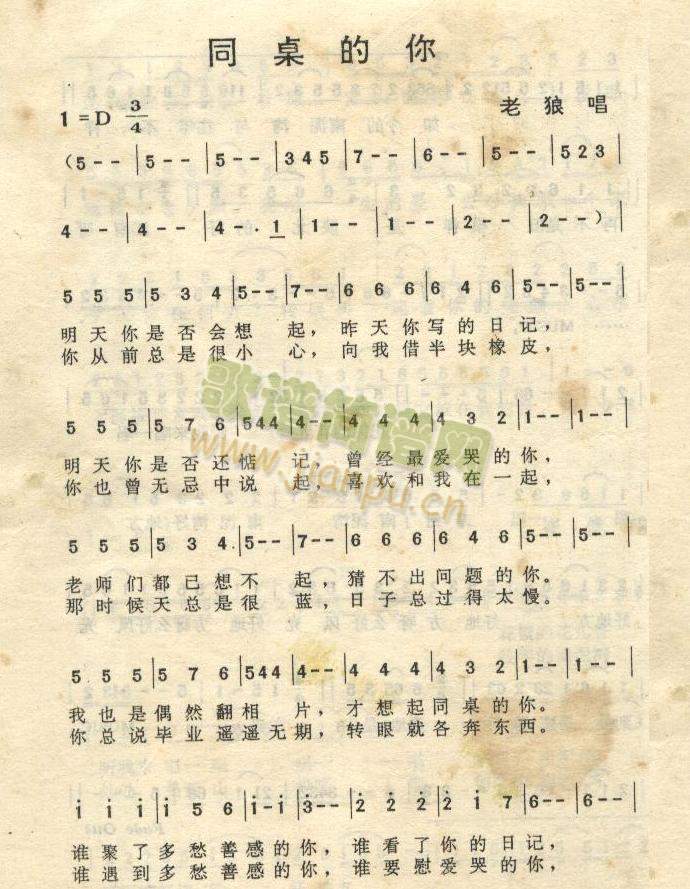 同桌的你
1=D 3/4
老狼唱
(5 - - | 5 - - | 5 - - | 3 4 5 | 7 - - | 6 - - | 5 - - | 5 2 3 |
4 - - | 4 - - | 4 - · 1 | 1 - - | 1 - - | 2 - - | 2 - - )|
5 5 5 | 5 3 4 | 5 - - | 7 - - | 6 6 6 | 6 4 6 | 5 - - | 5 - - |
明天你是否会想起，昨天你写的日记，
你从前总是很小心，向我借半块橡皮，
5 5 5 | 5 7 6 | 5 4 4 | 4 - - | 4 4 4 | 4 3 2 | 1 - - | 1 - - |
明天你是否还惦记，曾经最爱哭的你，
你也曾无忌中说起，喜欢和我在一起，
5 5 5 | 5 3 4 | 5 - - | 7 - - | 6 6 6 | 6 4 6 | 5 - - | 5 - - |
老师们都已想不起，猜不出问题的你。
那时候天总是很蓝，日子总过得太慢。
5 5 5 | 5 7 6 | 5 4 4 | 4 - - | 4 4 4 | 4 3 2 | 1 - - | 1 - - |
我也是偶然翻相片，才想起同桌的你。
你总说毕业遥遥无期，转眼就各奔东西。
i i i | i 5 6 | i - i | 3̇ - - | 2̇ 2̇ 2̇ | 2̇ i 7 | 6 - - | 6 - - |
谁聚了多愁善感的你，谁看了你的日记，
谁遇到多愁善感的你，谁要慰爱哭的你，
歌谱简谱网
www.jianpu.cn